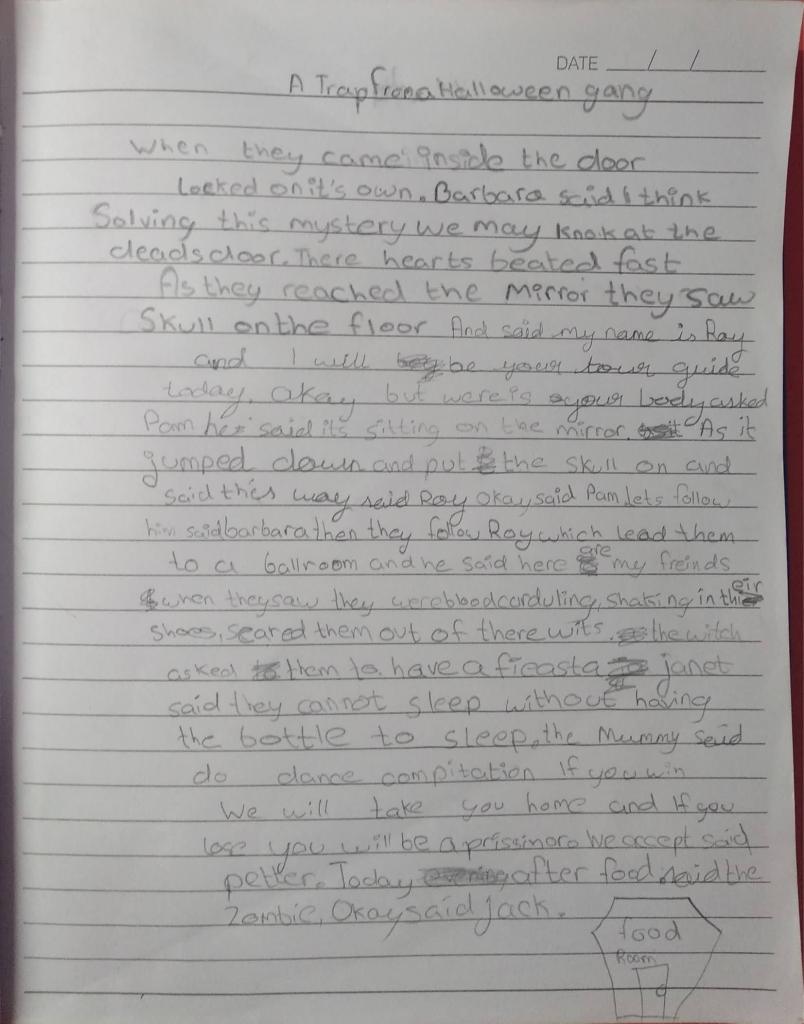 DATE / /
A Trap from a Halloween gang
When they came inside the door
locked on it's own. Barbara said I think
Solving this mystery we may knok at the
deads door. There hearts beated fast
As they reached the mirror they saw
Skull on the floor And said my name is Roy
and I will be your tour guide
today, okay but were is your body asked
Pam he said its sitting on the mirror. As it
jumped down and put the skull on and
said this way said Roy okay said Pam lets follow
him said barbara then they follow Roy which lead them
to a ballroom and he said here are my freinds
when they saw they were bloodcorduling, shaking in their
shoes, scared them out of there wits. the witch
asked them to have a fieasta janet
said they cannot sleep without having
the bottle to sleep. the Mummy said
do dance compitation If you win
We will take you home and If you
lose you will be a prissinoro We accept said
petter. Today after food said the
Zombie, Okay said jack.
food
Room